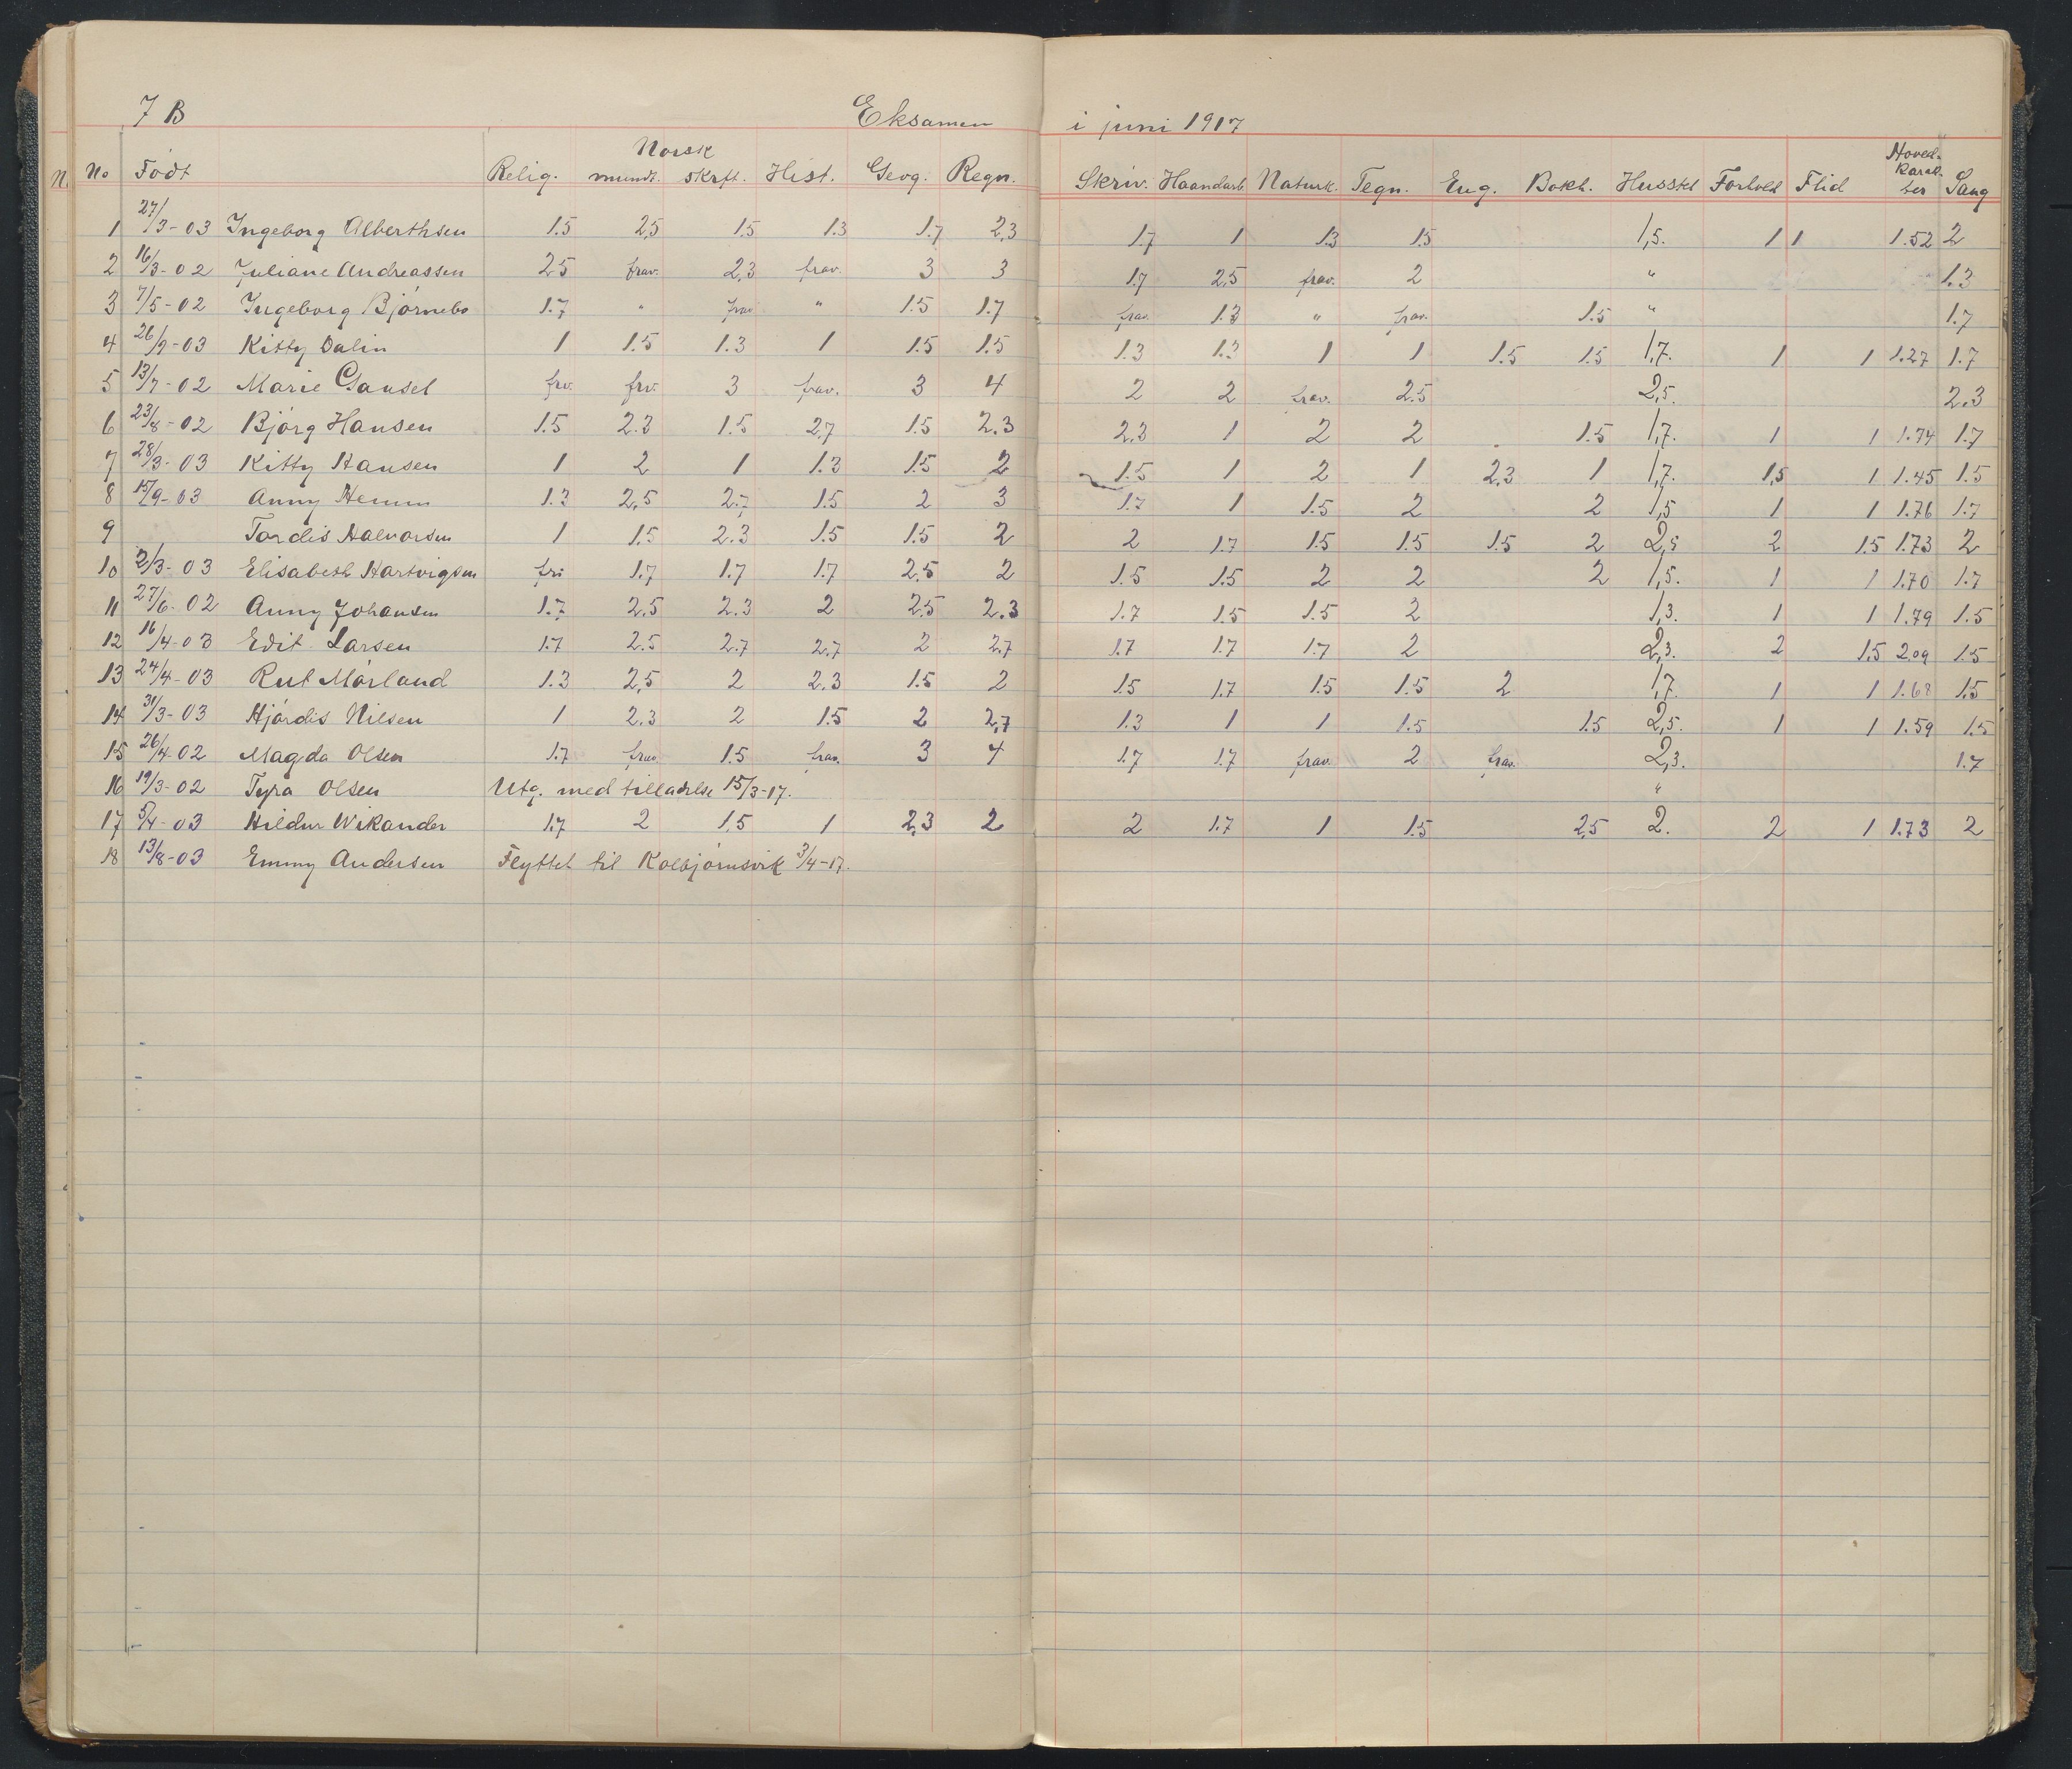 7 B Eksamen i juni 1917
No Født Relig. Norsk mundt. skrft. Hist. Geog. Regn. Skriv. Haandarb Naturk. Tegn. Eng. Bokh. Husstel Forhold Flid Hoved-Karak-ter Sang
1 27/3-03 Ingeborg Alberthsen 1.5 2,5 1.5 1.3 1.7 2,3 1.7 1 1.3 1.5 1,5. 1 1 1.52 2
2 16/3-02 Juliane Andreassen 2.5 frav. 2,3 frav. 3 3 1.7 2,5 frav. 2 " 1.3
3 7/5-02 Ingeborg Bjørnebo 1.7 " frav " 1.5 1.7 frav. 1.3 " frav. 1.5 " 1.7
4 26/9-03 Kitty Dalin 1 1.5 1.3 1 1.5 1.5 1.3 1.3 1 1 1.5 1.5 1,7. 1 1 1.27 1.7
5 13/7-02 Marie Gausel frv. frv. 3 frav. 3 4 2 2 frav. 2.5 2,5. 2.3
6 23/8-02 Bjørg Hansen 1.5 2.3 1.5 2,7 1.5 2.3 2.3 1 2 2 1.5 1,7. 1 1 1.74 1.7
7 28/3-03 Kitty Hansen 1 2 1 1.3 1.5 2 1.5 1 2 1 2,3 1 1,7. 1,5 1 1.45 1.5
8 15/9-03 Anny Hemm 1.3 2,5 2.7 1.5 2 3 1.7 1 1.5 2 2 1,5 1 1 1.76 1.7
9 Tordis Halvorsen 1 1.5 2.3 1.5 1.5 2 2 1.7 1.5 1.5 1.5 2 2,5 2 1.5 1.73 2
10 2/3-03 Elisabeth Hartvigsen fri 1.7 1.7 1.7 2,5 2 1.5 1.5 2 2 2 1,5. 1 1 1.70 1.7
11 27/6-02 Anny Johansen 1.7 2,5 2.3 2 2.5 2.3 1.7 1.5 1.5 2 1,3. 1 1 1.79 1.5
12 16/4-03 Edit Larsen 1.7 2.5 2.7 2,7 2 2,7 1.7 1.7 1.7 2 2,3. 2 1.5 2.09 1.5
13 24/4-03 Rut Mørland 1.3 2,5 2 2.3 1.5 2 1.5 1.7 1.5 1.5 2 1,7. 1 1 1.68 1.5
14 31/3-03 Hjørdis Nilsen 1 2.3 2 1.5 2 2,7 1.3 1 1 1.5 1.5 2,5. 1 1 1.59 1.5
15 26/4-02 Magda Olsen 1.7 frav. 1.5 frav. 3 4 1.7 1.7 frav. 2 frav. 2,3. 1.7
16 19/3-02 Tyra Olsen Utg. med tilladelse 15/3-17. "
17 5/4-03 Hildur Wikander 1.7 2 1.5 1 2,3 2 2 1.7 1 1.5 2,5 2. 2 1 1.73 2
18 13/8-03 Emmy Andersen Flyttet til Kolbjørnsvik 3/4-17.